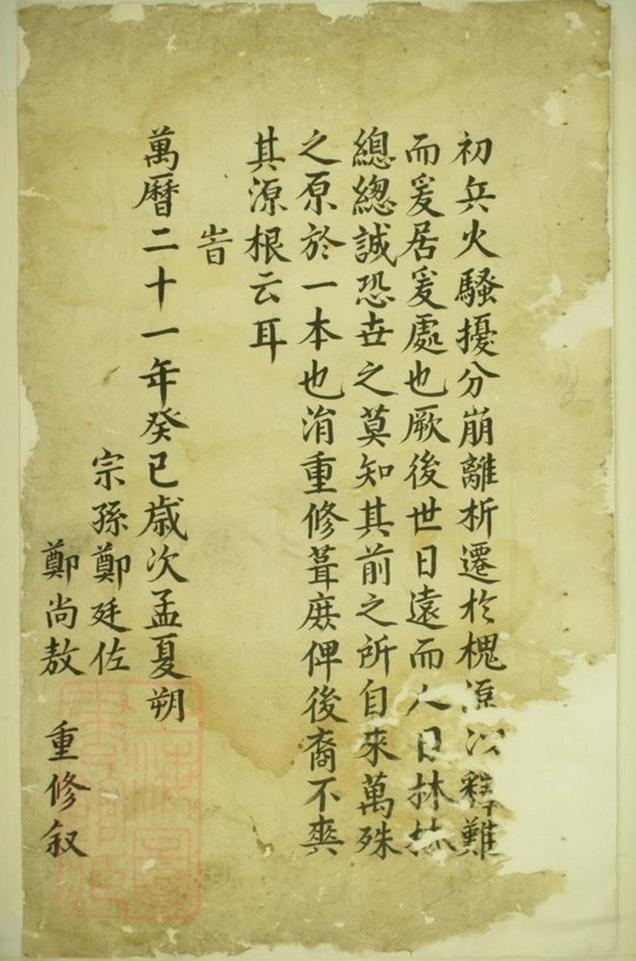 初兵火騷擾分崩離析遷於槐源以釋難
而爰居爰處也厥後世日遠而人日林林
總總誠恐世之莫知其前之所自來萬殊
之原於一本也涓重修葺庶俾後裔不爽
其源根云耳
旹
萬曆二十一年癸巳歲次孟夏朔
宗孫鄭廷佐
鄭尚敖 重修叙